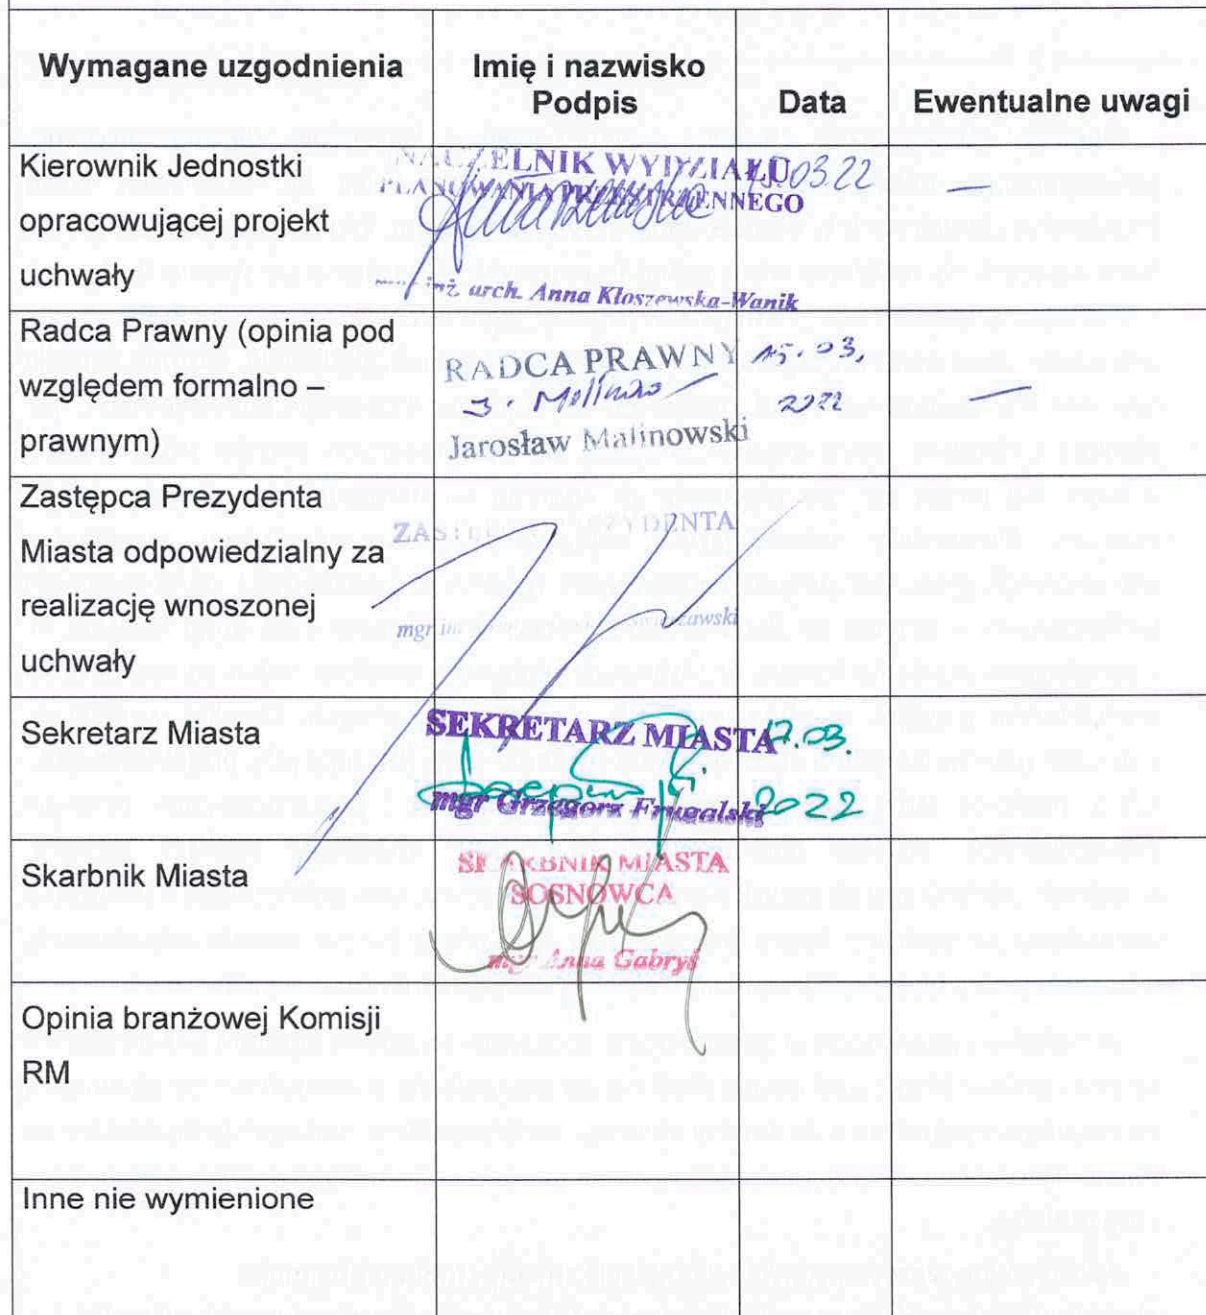 Wymagane uzgodnienia
Imię i nazwisko
Podpis
Data
Ewentualne uwagi
Kierownik Jednostki
opracowującej projekt
uchwały
NACZELNIK WYDZIAŁU
PLANOWANIA PRZESTRZENNEGO
inż. arch. Anna Kłoszewska-Wanik
03.22
—
Radca Prawny (opinia pod
względem formalno –
prawnym)
RADCA PRAWNY
Jarosław Malinowski
15.03.
2022
—
Zastępca Prezydenta
Miasta odpowiedzialny za
realizację wnoszonej
uchwały
ZASTĘPCA PREZYDENTA
mgr
Sekretarz Miasta
SEKRETARZ MIASTA
mgr Grzegorz Frugalski
17.03.
2022
Skarbnik Miasta
SKARBNIK MIASTA
SOSNOWCA
mgr Anna Gabryś
Opinia branżowej Komisji
RM
Inne nie wymienione